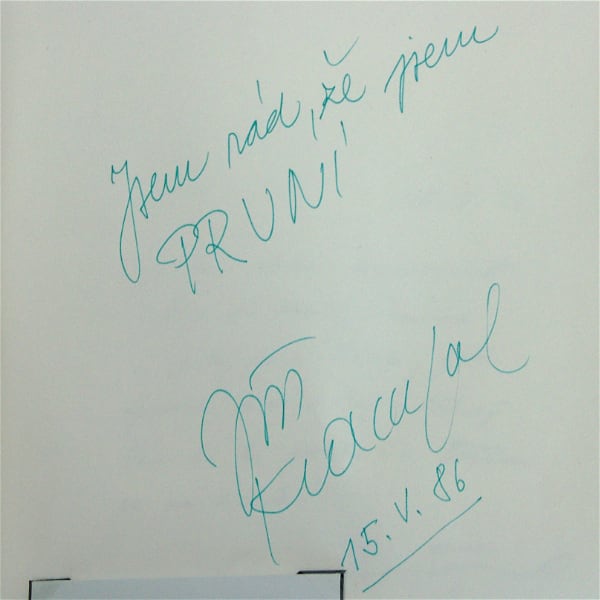 Jsem rád, že jsem
PRVNÍ
Jiří
Krampol
15. V. 86